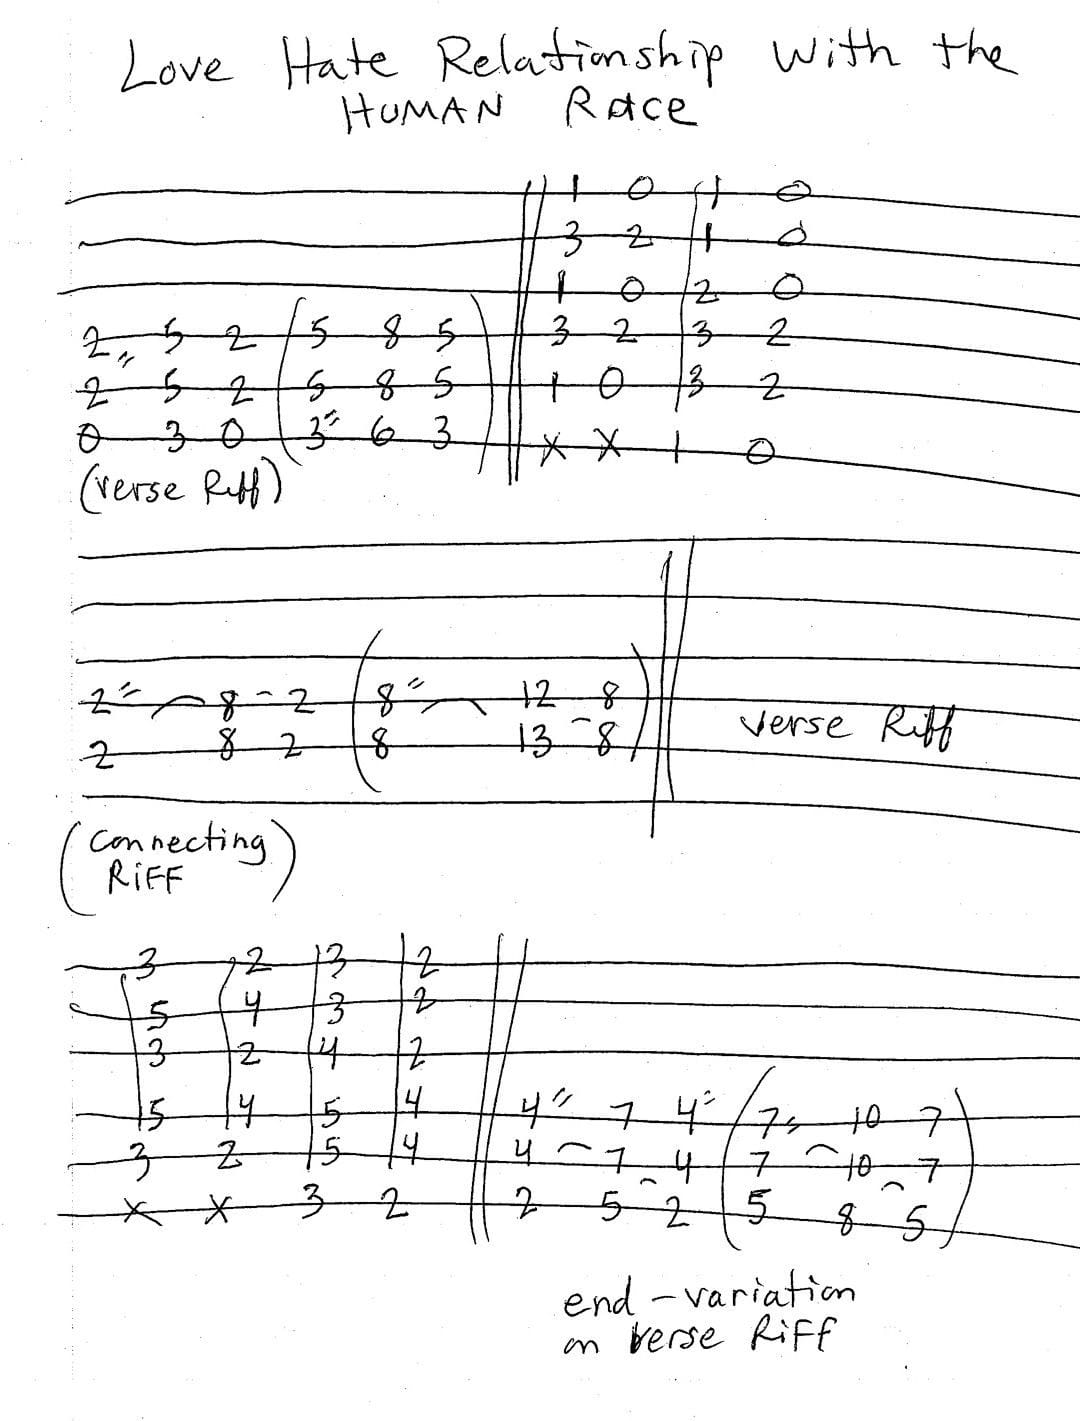 Love Hate Relationship With the
HUMAN Race
1 0 1 0
3 2 1 0
1 0 2 0
2 5 2 ( 5 8 5 ) 3 2 3 2
2 5 2 ( 5 8 5 ) 1 0 3 2
0 3 0 ( 3 6 3 ) X X 1 0
(Verse Riff)
2 8 2 ( 8 12 8 )
2 8 2 ( 8 13 8 )
Verse Riff
(Connecting
RiFF)
3 2 3 2
5 4 3 2
3 2 4 2
5 4 5 4 4 7 4 ( 7 10 7 )
3 2 5 4 4 7 4 ( 7 10 7 )
X X 3 2 2 5 2 ( 5 8 5 )
end - variation
on Verse RiFF